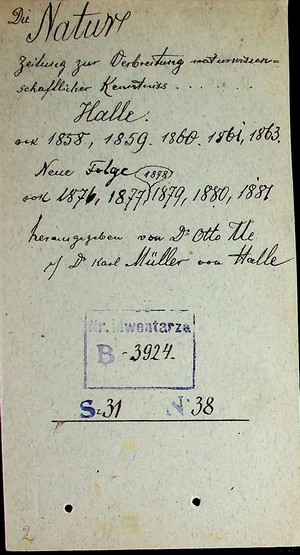 Die Natur
Zeitung zur Verbreitung naturwissen=
schaftlicher Kenntniss . . . . . .
Halle.
rok 1858, 1859. 1860. 1861, 1863.
Neue Folge 1878
rok 1876, 1877, 1879, 1880, 1881
herausgegeben von Dr Otto Ule
u/ Dr Karl Müller von Halle
Nr. inwentarza
B - 3924.
S. 31 N 38
2